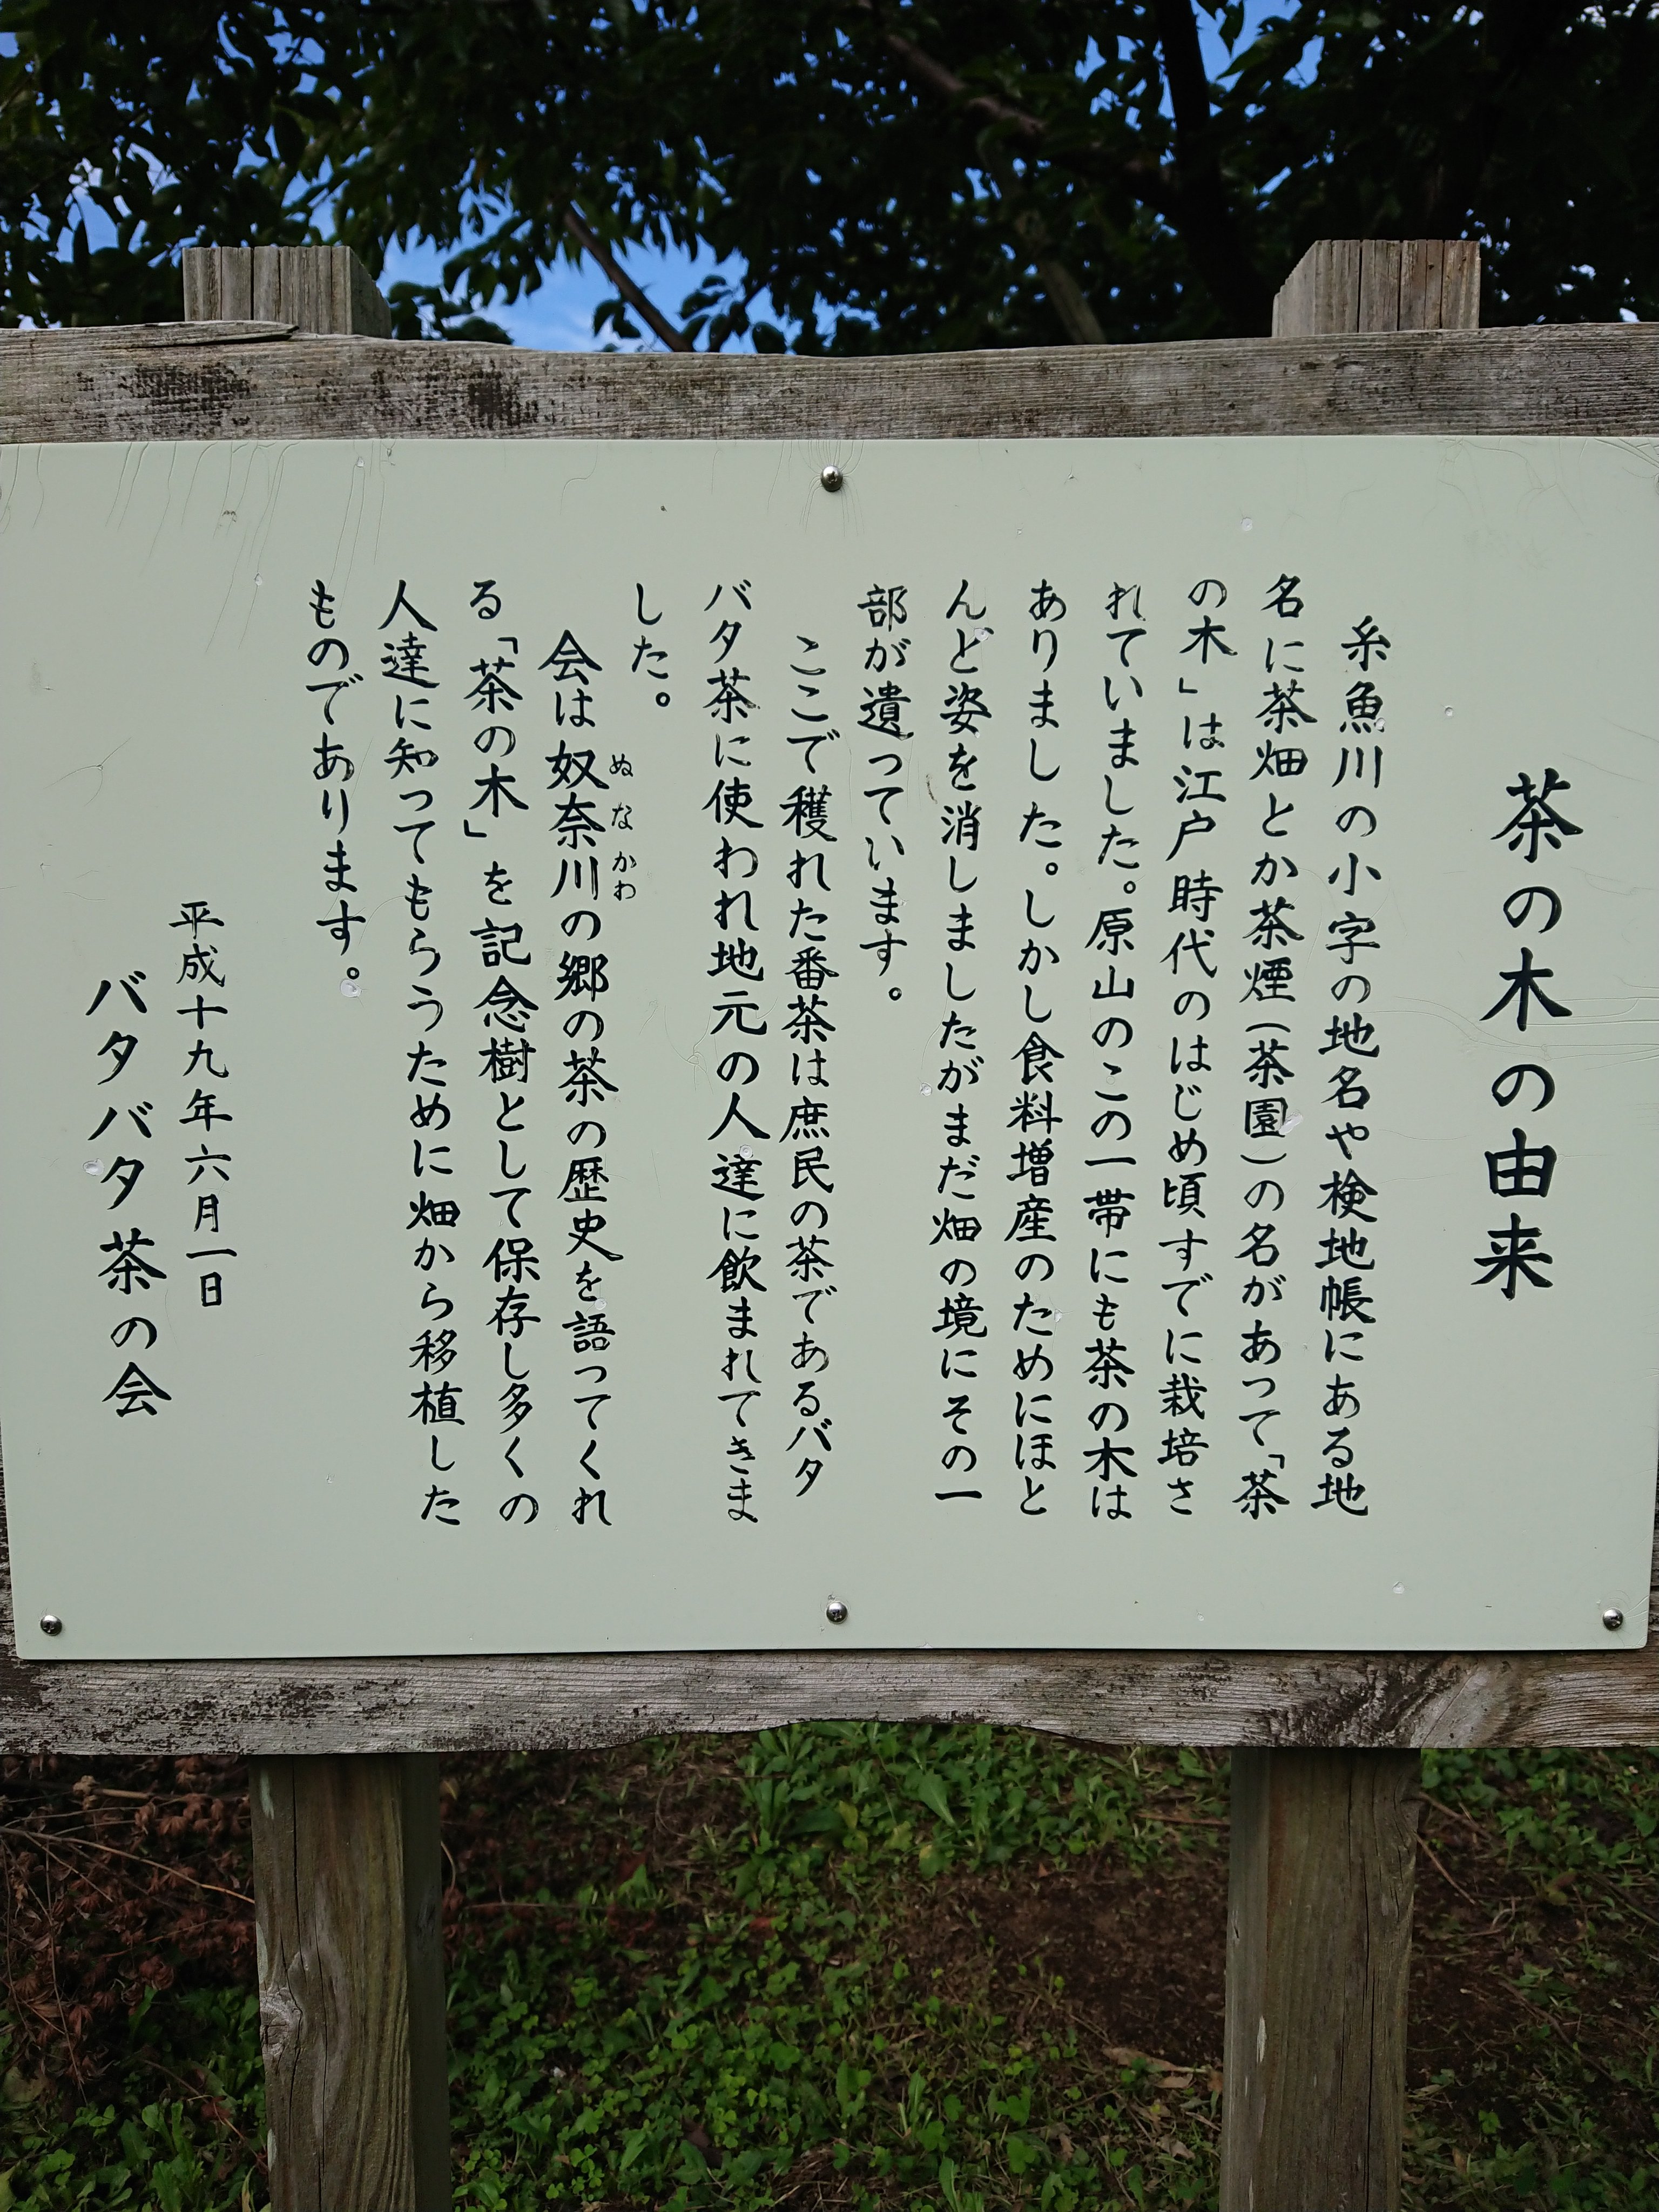 茶の木の由来
糸魚川の小字の地名や検地帳にある地
名に茶畑とか茶煙(茶園)の名があって「茶
の木」は江戸時代のはじめ頃すでに栽培さ
れていました。原山のこの一帯にも茶の木は
ありました。しかし食料増産のためにほと
んど姿を消しましたがまだ畑の境にその一
部が遺っています。
ここで穫れた番茶は庶民の茶であるバタ
バタ茶に使われ地元の人達に飲まれてきま
した。
会は奴奈川の郷の茶の歴史を語ってくれ
ぬなかわ
る「茶の木」を記念樹として保存し多くの
人達に知ってもらうために畑から移植した
ものであります。
平成十九年六月一日
バタバタ茶の会